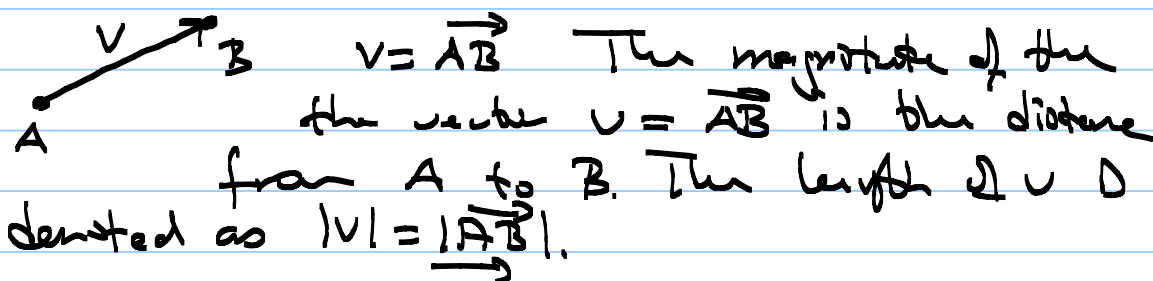 V B V = \overrightarrow{AB} The magnitude of the
A the vector V = \overrightarrow{AB} is the distance
from A to B. The length of V is
denoted as |V| = |\overrightarrow{AB}|.